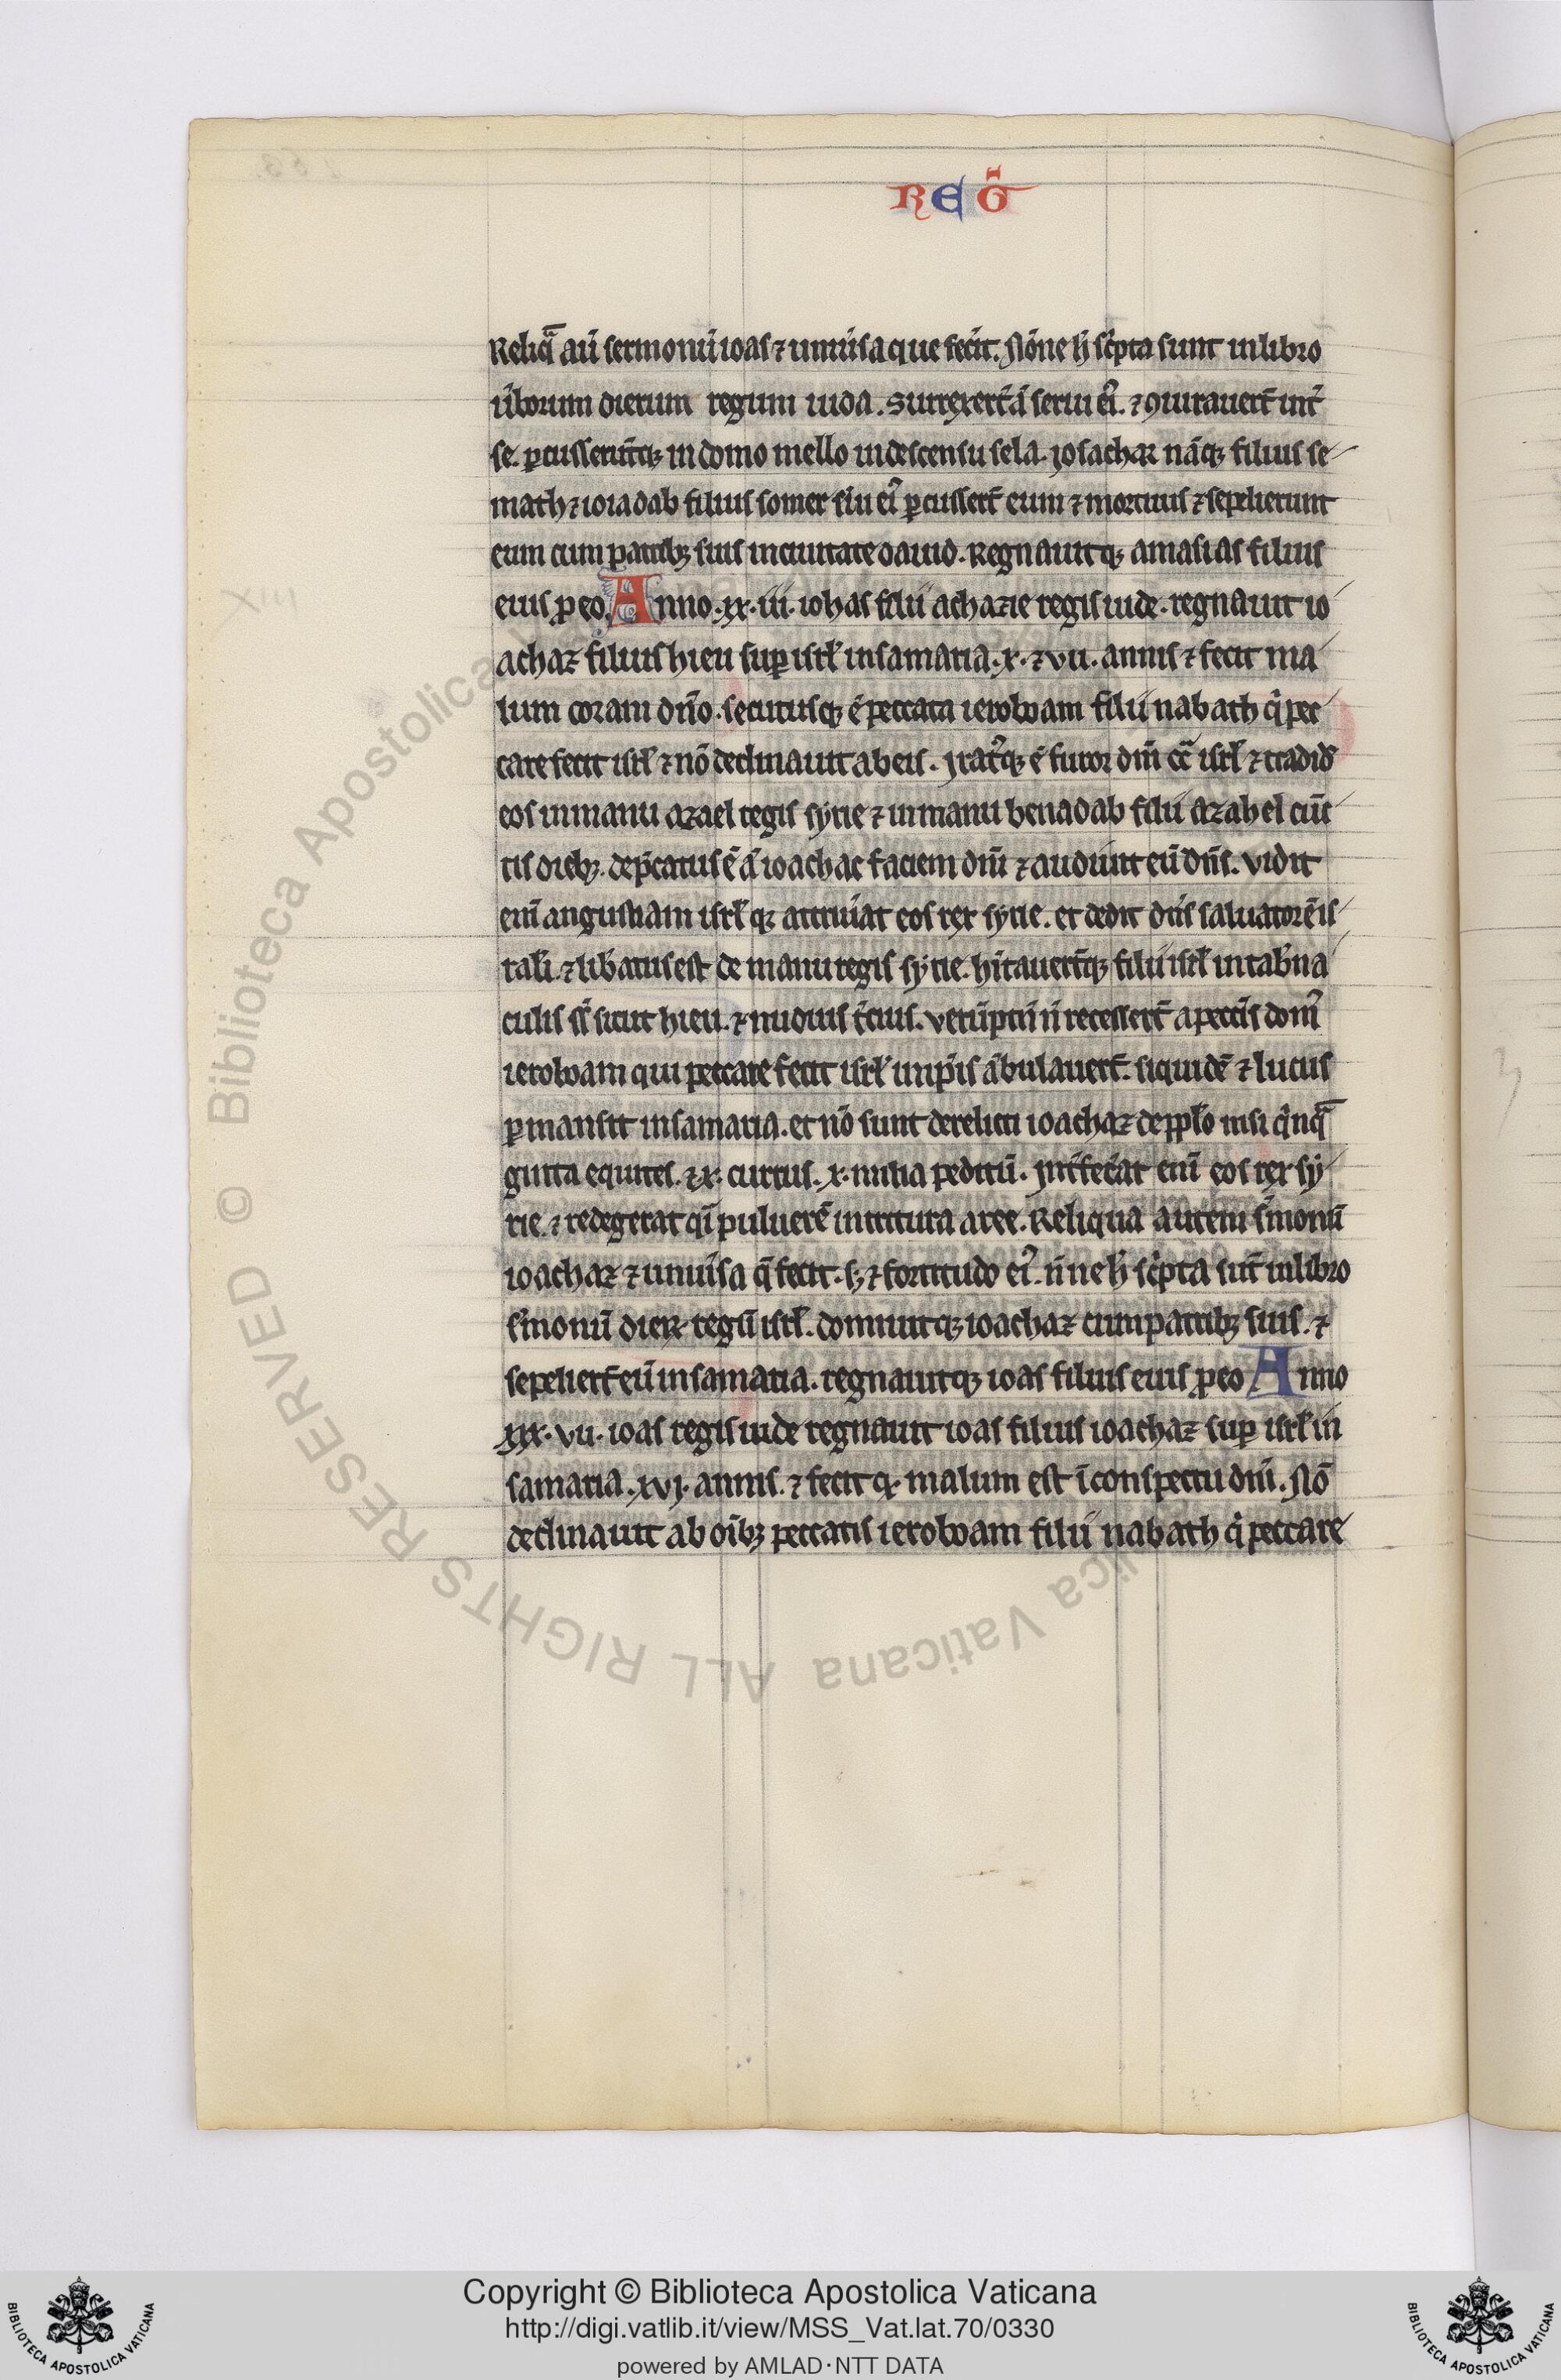 REḠ
Reliq̄ aū sermonū ioas ⁊ uniũsa que fecit. Nōne h̄ sc̄pta sunt in libro
ũborum dierum regum iuda. Surrexert̄ ā serui eiꝰ. ⁊ ꝯiurauert̄ int̄
se. ꝑcusserūtqꝫ in domo mello in descensu sela. Iosachar nāqꝫ filius se-
math ⁊ ioiadab filius somer s̄ui eiꝰ ꝑcussert̄ eum ⁊ mortuus ⁊ sepelierunt
eum cum patribꝫ suis in ciuitate dauid. Regnauitqꝫ amasias filius
eius ꝓ eo. Anno .xx.iii. iohas filii achazie regis iude. regnauit io
achaz filius hieu suꝑ isrł in samaria .x. ⁊ vii. annis ⁊ fecit ma
lum coram dn̄o. secutusqꝫ ē peccata ieroboam filii nabath q̇ pec
care fecit isrł ⁊ nō declinauit ab eis. Iratꝰqꝫ ē furor dn̄i cc̄ isrł ⁊ tradid̄
eos in manu azael regis syrie ⁊ in manu benadab filii azahel cūc
tis diebꝫ. dep̄catus ē ā ioachac faciem dn̄i ⁊ audiuit eū dn̄s. Vidit
enī angustiam isrł qꝫ attriũat eos rex syrie. et dedit dn̄s saluatorē is
rałi. ⁊ lib̄atus est de manu regis syrie. hītauert̄qꝫ filii isrł in tab̄na
culis s̄ sicut hieu. ⁊ nudius t̄cius. Verūptn̄ n̄ recessert̄ a pecc̄is domꝰ
ieroboam qui peccare fecit isrł in ip̄is ābulauert̄. siquidē ⁊ lucus
ꝑmansit in samaria. et nō sunt derelicti ioachaz de pp̄ło nisi q̇nq̄
ginta equites. ⁊ x. currus. x. milia peditū. Int̄fec̄at enī eos rex sy
rie. ⁊ redegerat q̄i puluerē in tritura aree. Reliqua autem s̄monū
ioachaz ⁊ uniũsa q̄ fecit. sꝫ ⁊ fortitudo eiꝰ. n̄ne h̄ sc̄pta sūt in libro
s̄monū dieꝝ regū isrł. dormiuitqꝫ ioachaz cum patribꝫ suis. ⁊
sepeliert̄ eū in samaria. regnauitqꝫ ioas filius eius ꝓ eo Anno
xxx.vii. ioas regis iude regnauit ioas filius ioachaz suꝑ isrł in
samaria. xvi. annis. ⁊ fecit qꝫ malum est ī conspectu dn̄i. Nō
declinauit ab oīibꝫ peccatis ieroboam filii nabath q̇ peccare
© Biblioteca Apostolica Vaticana ALL RIGHTS RESERVED
Copyright © Biblioteca Apostolica Vaticana
http://digi.vatlib.it/view/MSS_Vat.lat.70/0330
powered by AMLAD·NTT DATA
BIBLIOTECA APOSTOLICA VATICANA
BIBLIOTECA APOSTOLICA VATICANA